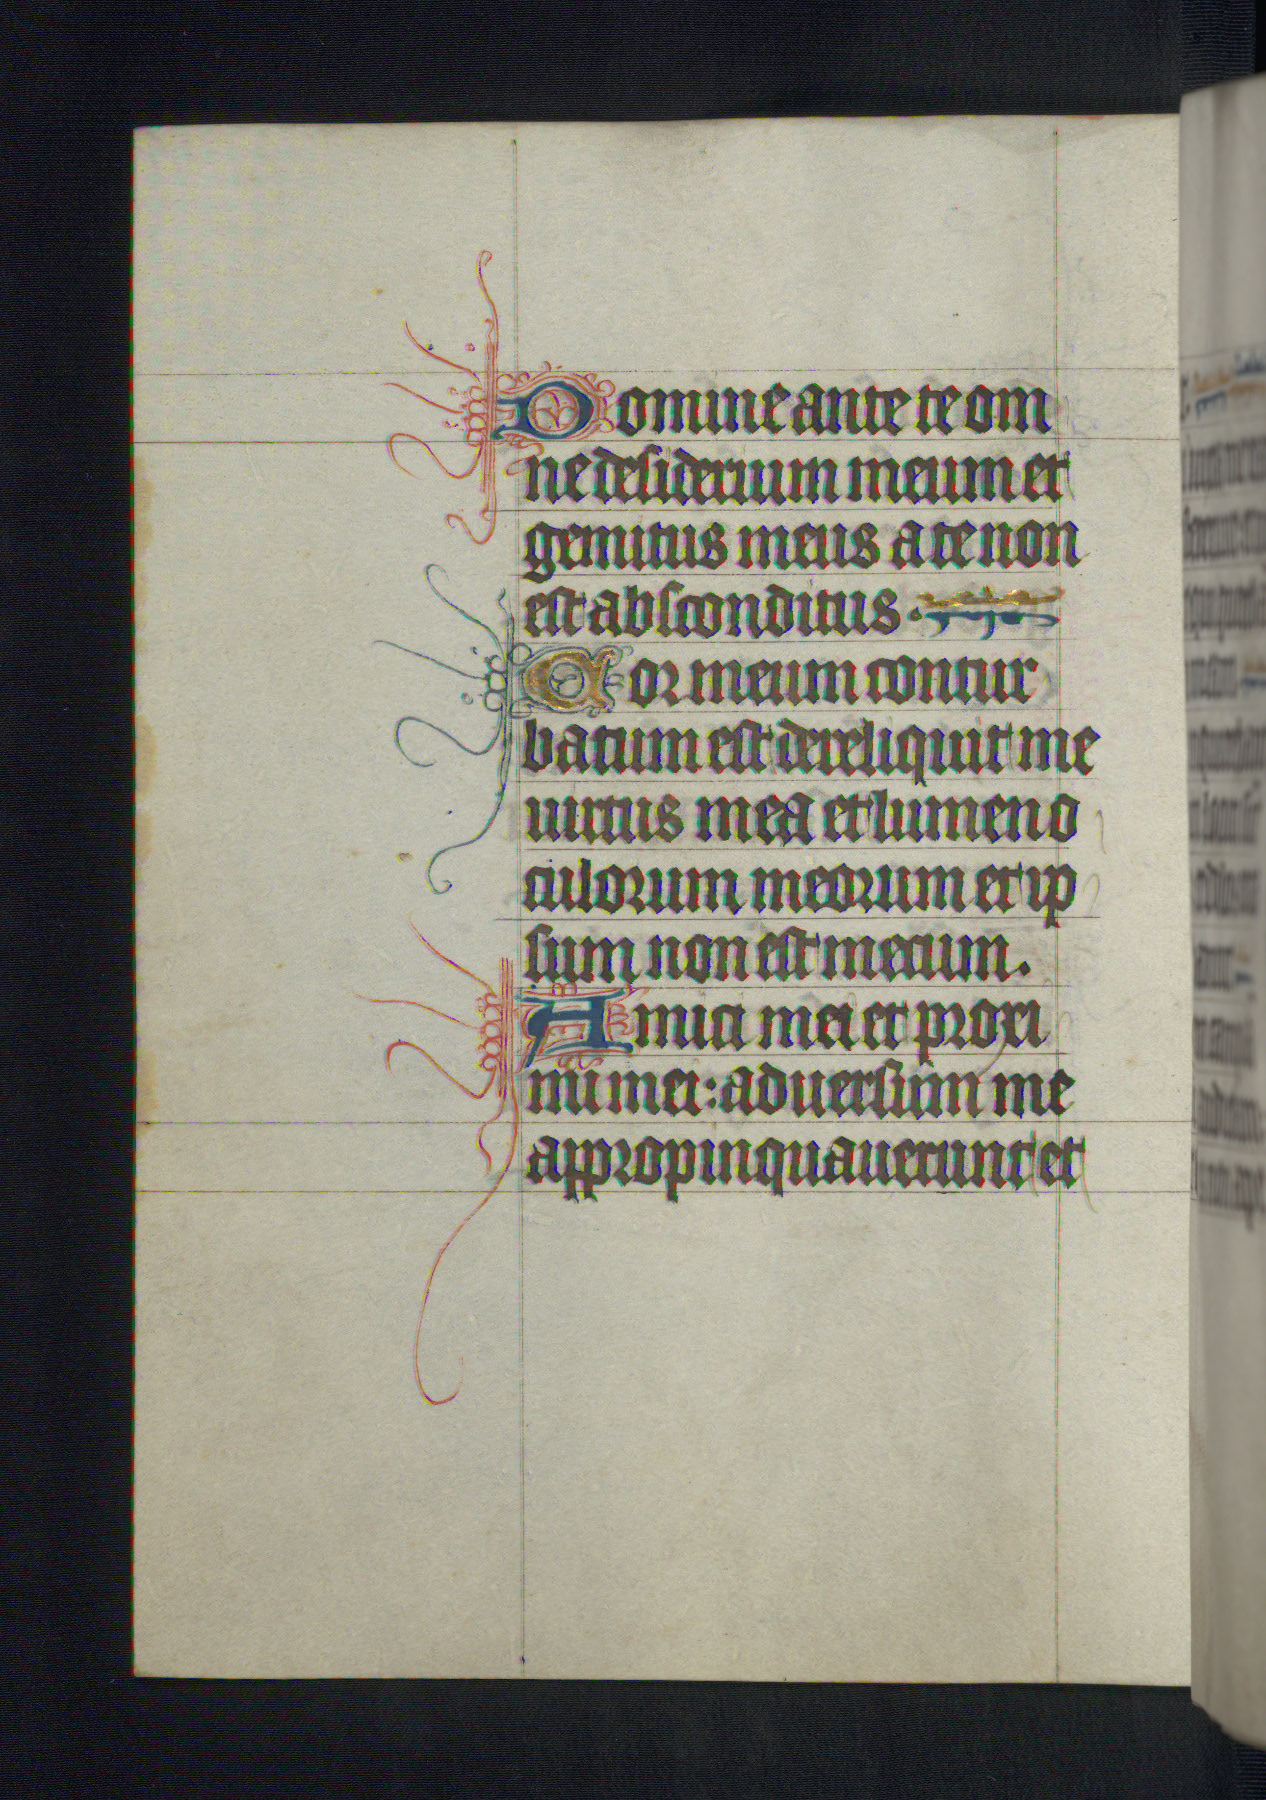 Domine ante te om
ne desiderium meum et
gemitus meus a te non
est absconditus.
Cor meum contur
batum est dereliquit me
uirtus mea et lumen o
culorum meorum et ip
sum non est mecum.
Amici mei et proxi
mi mei: aduersum me
appropinquauerunt et